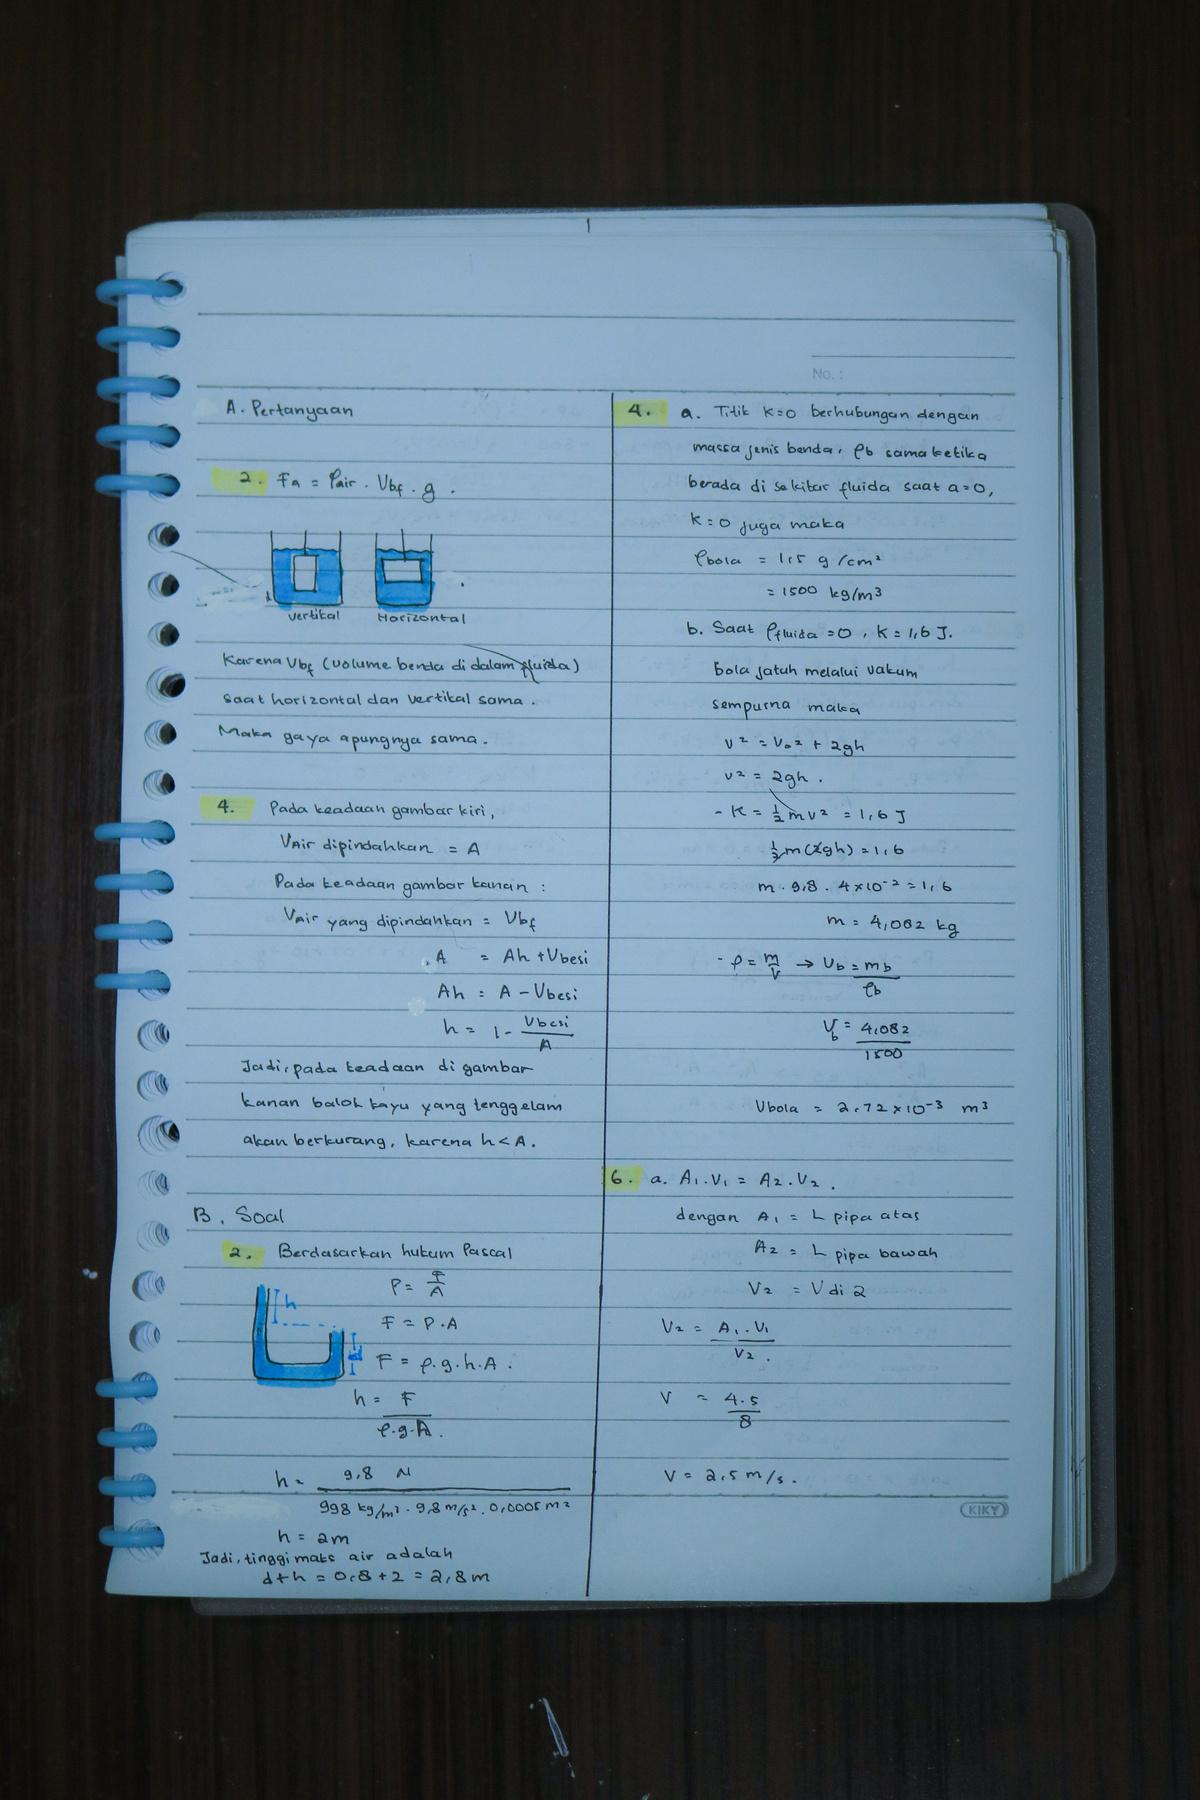 1
No. :
A. Pertanyaan
2. FA = ρair . Vbf . g .
vertikal
Horizontal
Karena Vbf (volume benda di dalam fluida)
saat horizontal dan vertikal sama .
Maka gaya apungnya sama .
4. Pada keadaan gambar kiri,
VAir dipindahkan = A
Pada keadaan gambar kanan :
VAir yang dipindahkan = Vbf
A = Ah + Vbesi
Ah = A - Vbesi
h = 1 - Vbesi / A
Jadi, pada keadaan di gambar
kanan balok kayu yang tenggelam
akan berkurang, karena h < A.
B. Soal
2. Berdasarkan hukum Pascal
P = F / A
h
F = P . A
d
F = ρ . g . h . A .
h = F / ρ . g . A .
h = 9,8 N / 998 kg/m³ . 9,8 m/s² . 0,0005 m²
h = 2m
Jadi, tinggi maks air adalah
d + h = 0,8 + 2 = 2,8 m
4. a. Titik K=0 berhubungan dengan
massa jenis benda, ρb sama ketika
berada di sekitar fluida saat a=0,
K=0 juga maka
ρbola = 1,5 g /cm²
= 1500 kg/m³
b. Saat ρfluida = 0 , K = 1,6 J.
bola jatuh melalui vakum
sempurna maka
v² = v₀² + 2gh
v² = 2gh .
- K = ½ mv² = 1,6 J
½ m (2gh) = 1,6
m . 9,8 . 4 × 10⁻² = 1,6
m = 4,082 kg
- ρ = m / V → Vb = mb / ρb
Vb = 4,082 / 1500
Vbola = 2,72 × 10⁻³ m³
6. a. A₁ . V₁ = A₂ . V₂ .
dengan A₁ = L pipa atas
A₂ = L pipa bawah
V₂ = V di 2
V₂ = A₁ . V₁ / V₂ .
V = 4.5 / 8
V = 2,5 m/s .
KIKY